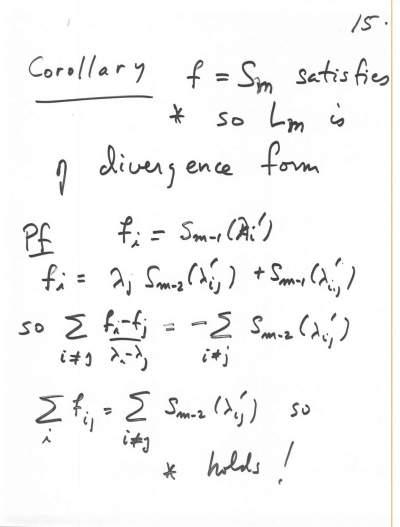 15.
Corollary f = Sₘ satisfies
* so Lₘ is
of divergence form
Pf fᵢ = Sₘ₋₁(λᵢ')
fᵢ = λⱼ Sₘ₋₂(λᵢⱼ') + Sₘ₋₁(λᵢⱼ')
so ∑_{i≠j} (fᵢ-fⱼ)/(λᵢ-λⱼ) = -∑_{i≠j} Sₘ₋₂(λᵢⱼ')
∑_i fᵢⱼ = ∑_{i≠j} Sₘ₋₂(λᵢⱼ') so
* holds!